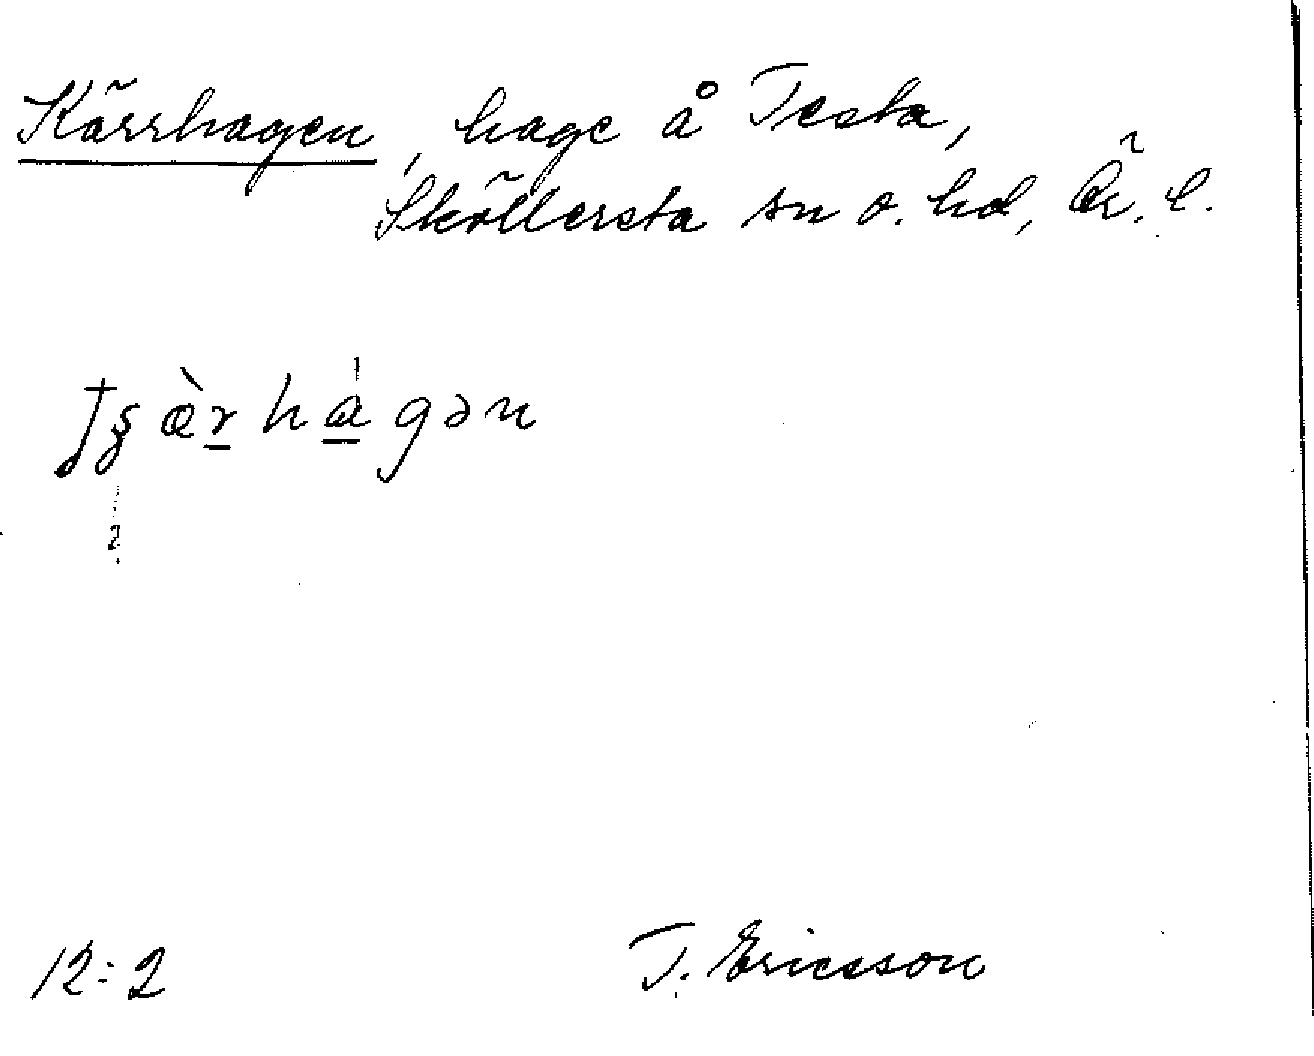 Kärrhagen, hage å Testa,
Sköllersta sn o. hd, Ör. l.
hagən
12:2
T. Ericsson